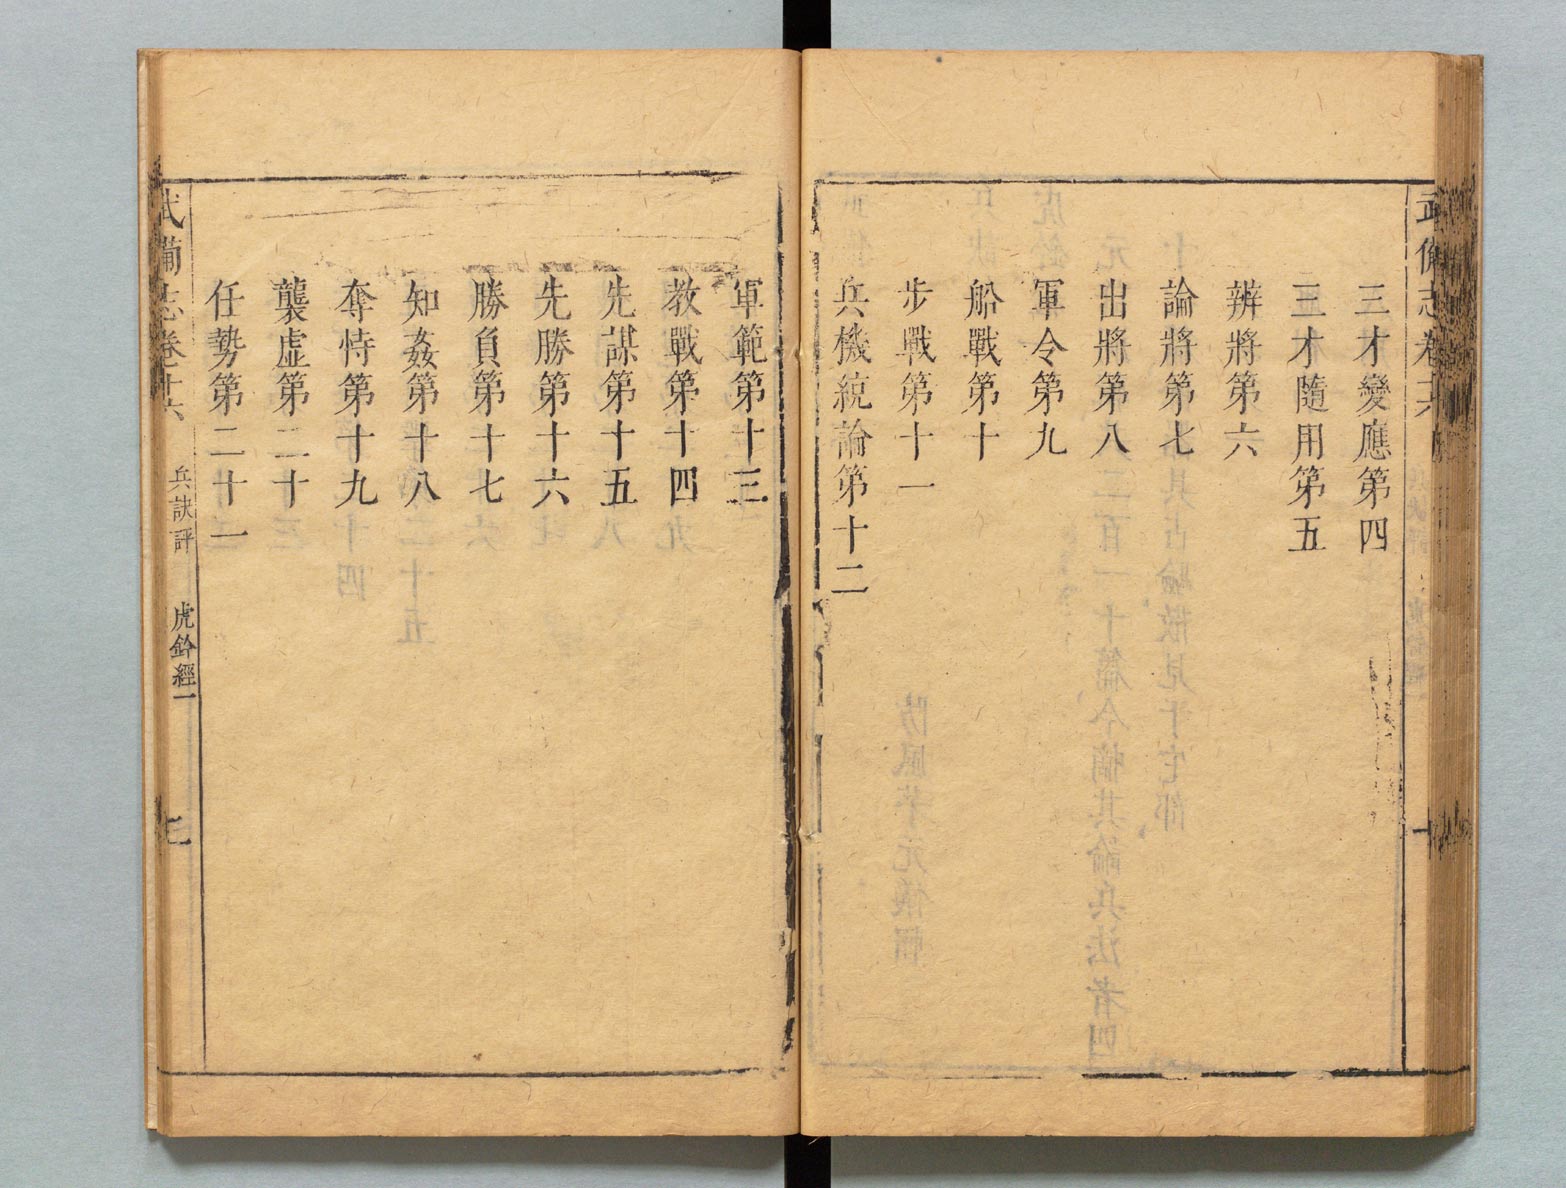 三才變應第四
三才隨用第五
辨將第六
論將第七
出將第八
軍令第九
船戰第十
步戰第十一
兵機統論第十二
軍範第十三
教戰第十四
先謀第十五
先勝第十六
勝負第十七
知姦第十八
奪恃第十九
襲虛第二十
任勢第二十一
武備志卷十六 兵訣評 虎鈐經一